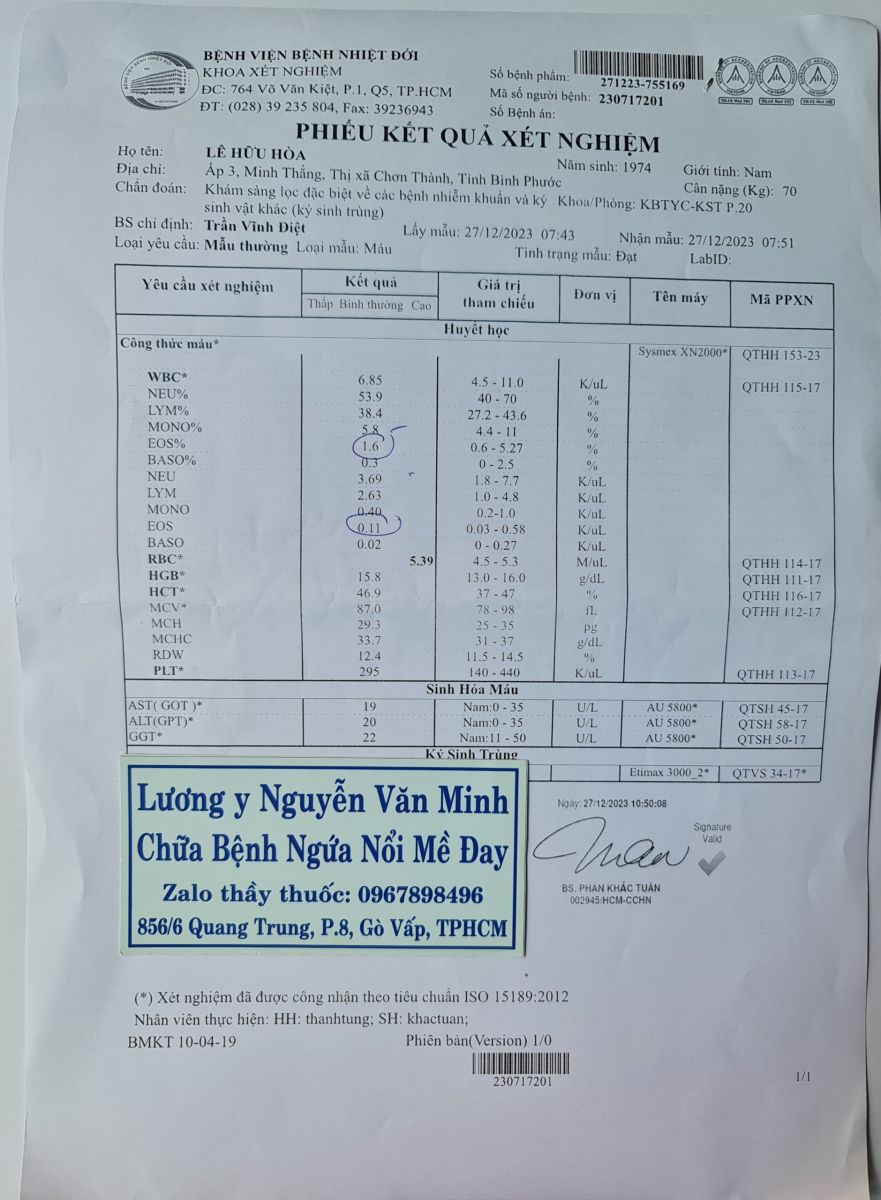 BỆNH VIỆN BỆNH NHIỆT ĐỚI
KHOA XÉT NGHIỆM
ĐC: 764 Võ Văn Kiệt, P.1, Q5, TP.HCM
ĐT: (028) 39 235 804, Fax: 39236943
Số bệnh phẩm: 271223-755169
Mã số người bệnh: 230717201
Số Bệnh án:
PHIẾU KẾT QUẢ XÉT NGHIỆM
Họ tên: LÊ HỮU HÒA Năm sinh: 1974 Giới tính: Nam
Địa chỉ: Ấp 3, Minh Thắng, Thị xã Chơn Thành, Tỉnh Bình Phước Cân nặng (Kg): 70
Chẩn đoán: Khám sàng lọc đặc biệt về các bệnh nhiễm khuẩn và ký Khoa/Phòng: KBTYC-KST P.20
sinh vật khác (ký sinh trùng)
BS chỉ định: Trần Vĩnh Điệt Lấy mẫu: 27/12/2023 07:43 Nhận mẫu: 27/12/2023 07:51
Loại yêu cầu: Mẫu thường Loại mẫu: Máu Tình trạng mẫu: Đạt LabID:
Yêu cầu xét nghiệm Kết quả Giá trị tham chiếu Đơn vị Tên máy Mã PPXN
Thấp Bình thường Cao
Huyết học
Công thức máu* Sysmex XN2000* QTHH 153-23
WBC* 6.85 4.5 - 11.0 K/uL QTHH 115-17
NEU% 53.9 40 - 70 %
LYM% 38.4 27.2 - 43.6 %
MONO% 5.8 4.4 - 11 %
EOS% 1.6 0.6 - 5.27 %
BASO% 0.3 0 - 2.5 %
NEU 3.69 1.8 - 7.7 K/uL
LYM 2.63 1.0 - 4.8 K/uL
MONO 0.40 0.2-1.0 K/uL
EOS 0.11 0.03 - 0.58 K/uL
BASO 0.02 0 - 0.27 K/uL
RBC* 5.39 4.5 - 5.3 M/uL QTHH 114-17
HGB* 15.8 13.0 - 16.0 g/dL QTHH 111-17
HCT* 46.9 37 - 47 % QTHH 116-17
MCV* 87.0 78 - 98 fL QTHH 112-17
MCH 29.3 25 - 35 pg
MCHC 33.7 31 - 37 g/dL
RDW 12.4 11.5 - 14.5 %
PLT* 295 140 - 440 K/uL QTHH 113-17
Sinh Hóa Máu
AST( GOT )* 19 Nam:0 - 35 U/L AU 5800* QTSH 45-17
ALT(GPT)* 20 Nam:0 - 35 U/L AU 5800* QTSH 58-17
GGT* 22 Nam:11 - 50 U/L AU 5800* QTSH 50-17
Ký Sinh Trùng
Etimax 3000_2* QTVS 34-17*
Lương y Nguyễn Văn Minh
Chữa Bệnh Ngứa Nổi Mề Đay
Zalo thầy thuốc: 0967898496
856/6 Quang Trung, P.8, Gò Vấp, TPHCM
Ngày: 27/12/2023 10:50:08
Signature
Valid
BS. PHAN KHẮC TUẤN
002945/HCM-CCHN
(*) Xét nghiệm đã được công nhận theo tiêu chuẩn ISO 15189:2012
Nhân viên thực hiện: HH: thanhtung; SH: khactuan;
BMKT 10-04-19 Phiên bản(Version) 1/0
230717201
1/1